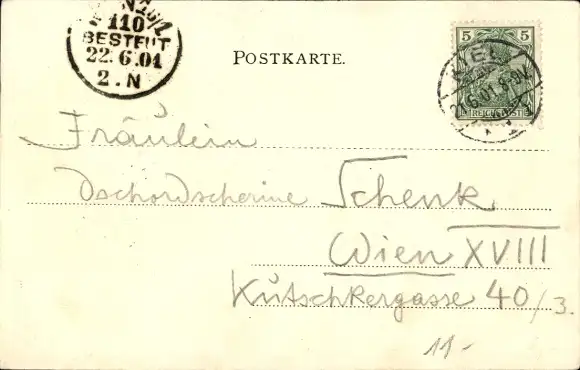 110
BESTELLT
22.6.01
2.N
POSTKARTE.
5 5
REICHSPOST
KIEL
21.6.01.8-9V.
Fräulein
Dschordscherine Schenk
Wien XVIII
Kutschkergasse 40/3.
11-